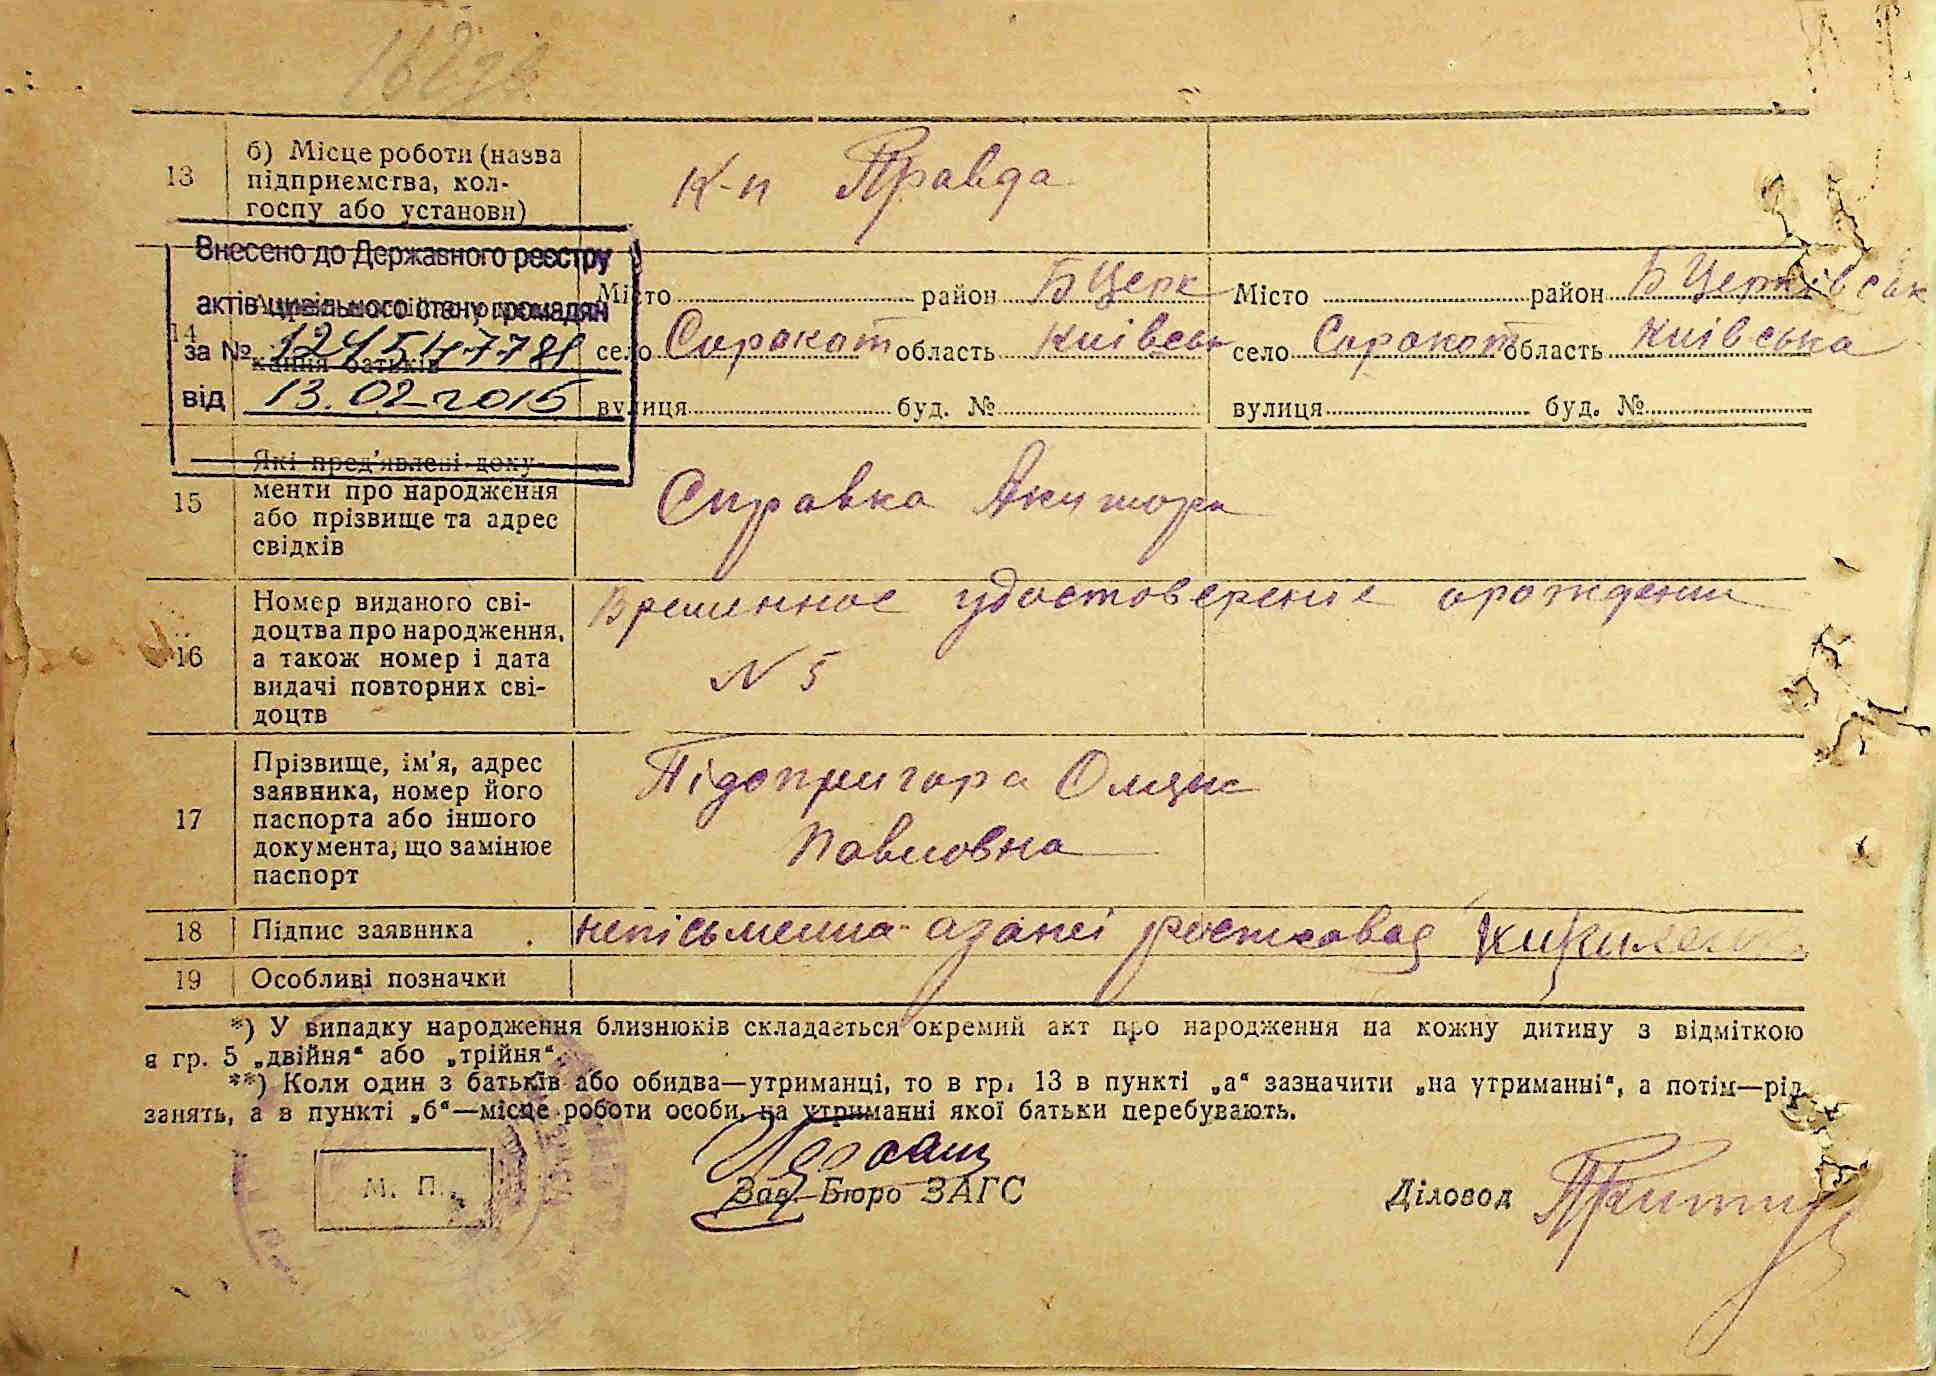 13
б) Місце роботи (назва
підприємства, кол-
госпу або установи)
к-п Правда
Внесено до Державного реєстру
актів цивільного стану громадян
за №
від 13.02.2015
14
кання батьків
Місто район Б Церк
село Сорокот область Київськ
вулиця буд. №
Місто район Б Церківськ
село Сорокот область Київська
вулиця буд. №
15
Які пред'явлені доку-
менти про народження
або прізвище та адрес
свідків
Справка
16
Номер виданого сві-
доцтва про народження,
а також номер і дата
видачі повторних сві-
доцтв
Временное удостоверение орождении
N 5
17
Прізвище, ім'я, адрес
заявника, номер його
паспорта або іншого
документа, що замінює
паспорт
Підопригора
Павловна
18 Підпис заявника
непісьменна
19 Особливі позначки
*) У випадку народження близнюків складається окремий акт про народження на кожну дитину з відміткою
в гр. 5 „двійня“ або „трійня“.
**) Коли один з батьків або обидва—утриманці, то в гр. 13 в пункті „а“ зазначити „на утриманні“, а потім—рід
занять, а в пункті „б“—місце роботи особи, на утриманні якої батьки перебувають.
М. П.
Зав. Бюро ЗАГС
Діловод